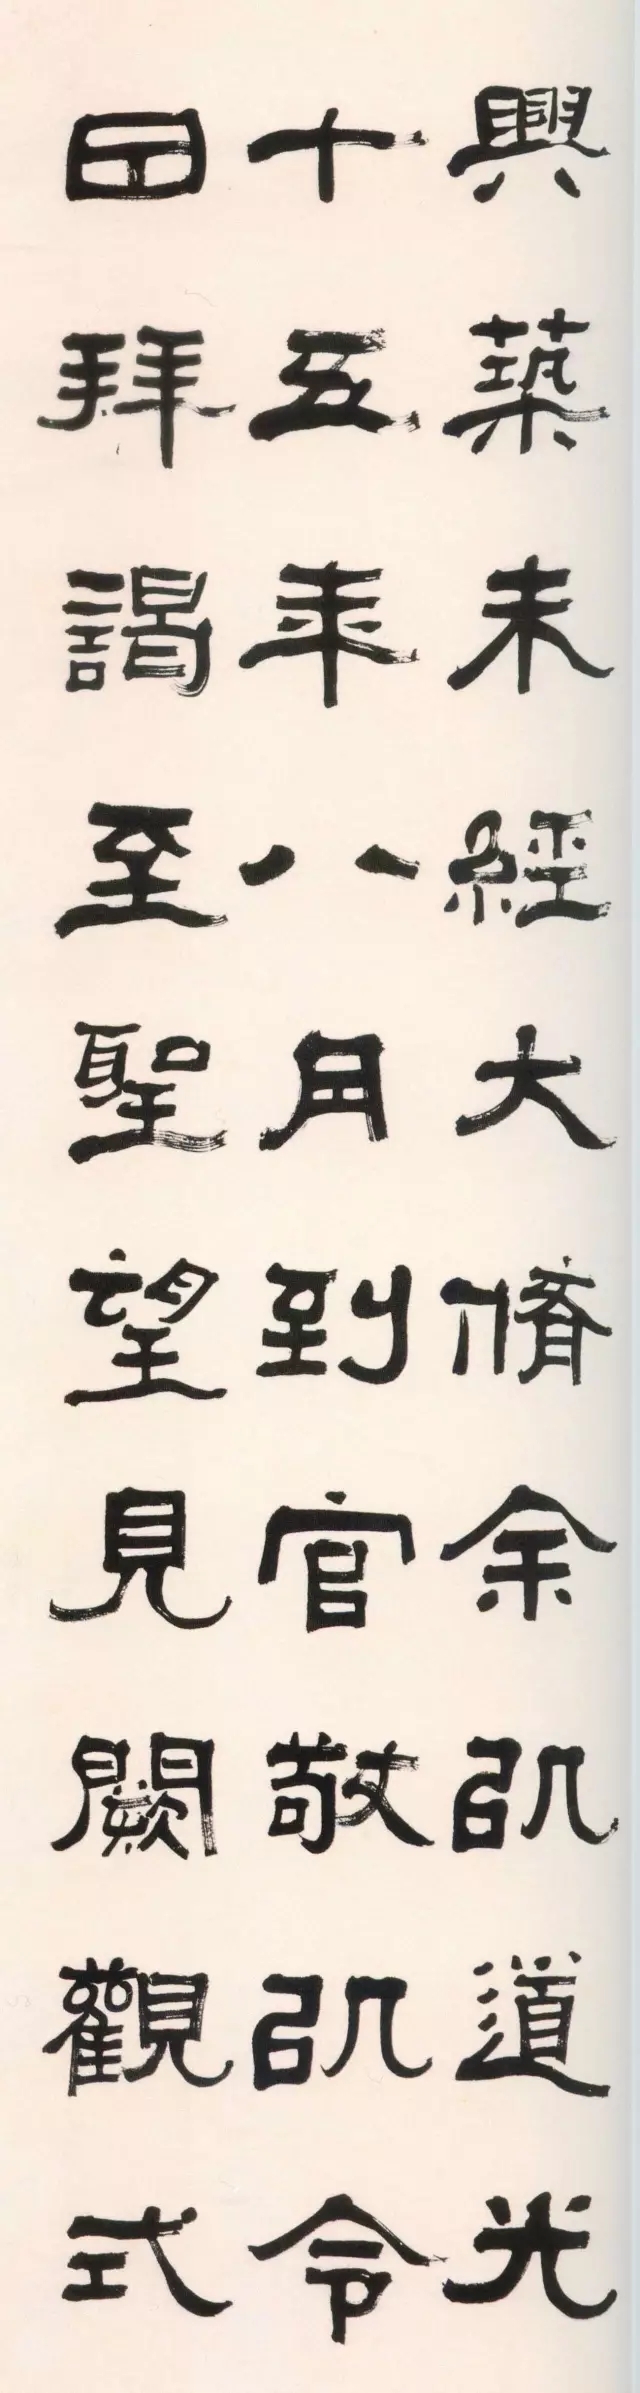 興築未經大脩余㠯道光
十五年八月到官敬㠯令
日拜謁至聖望見闕觀式